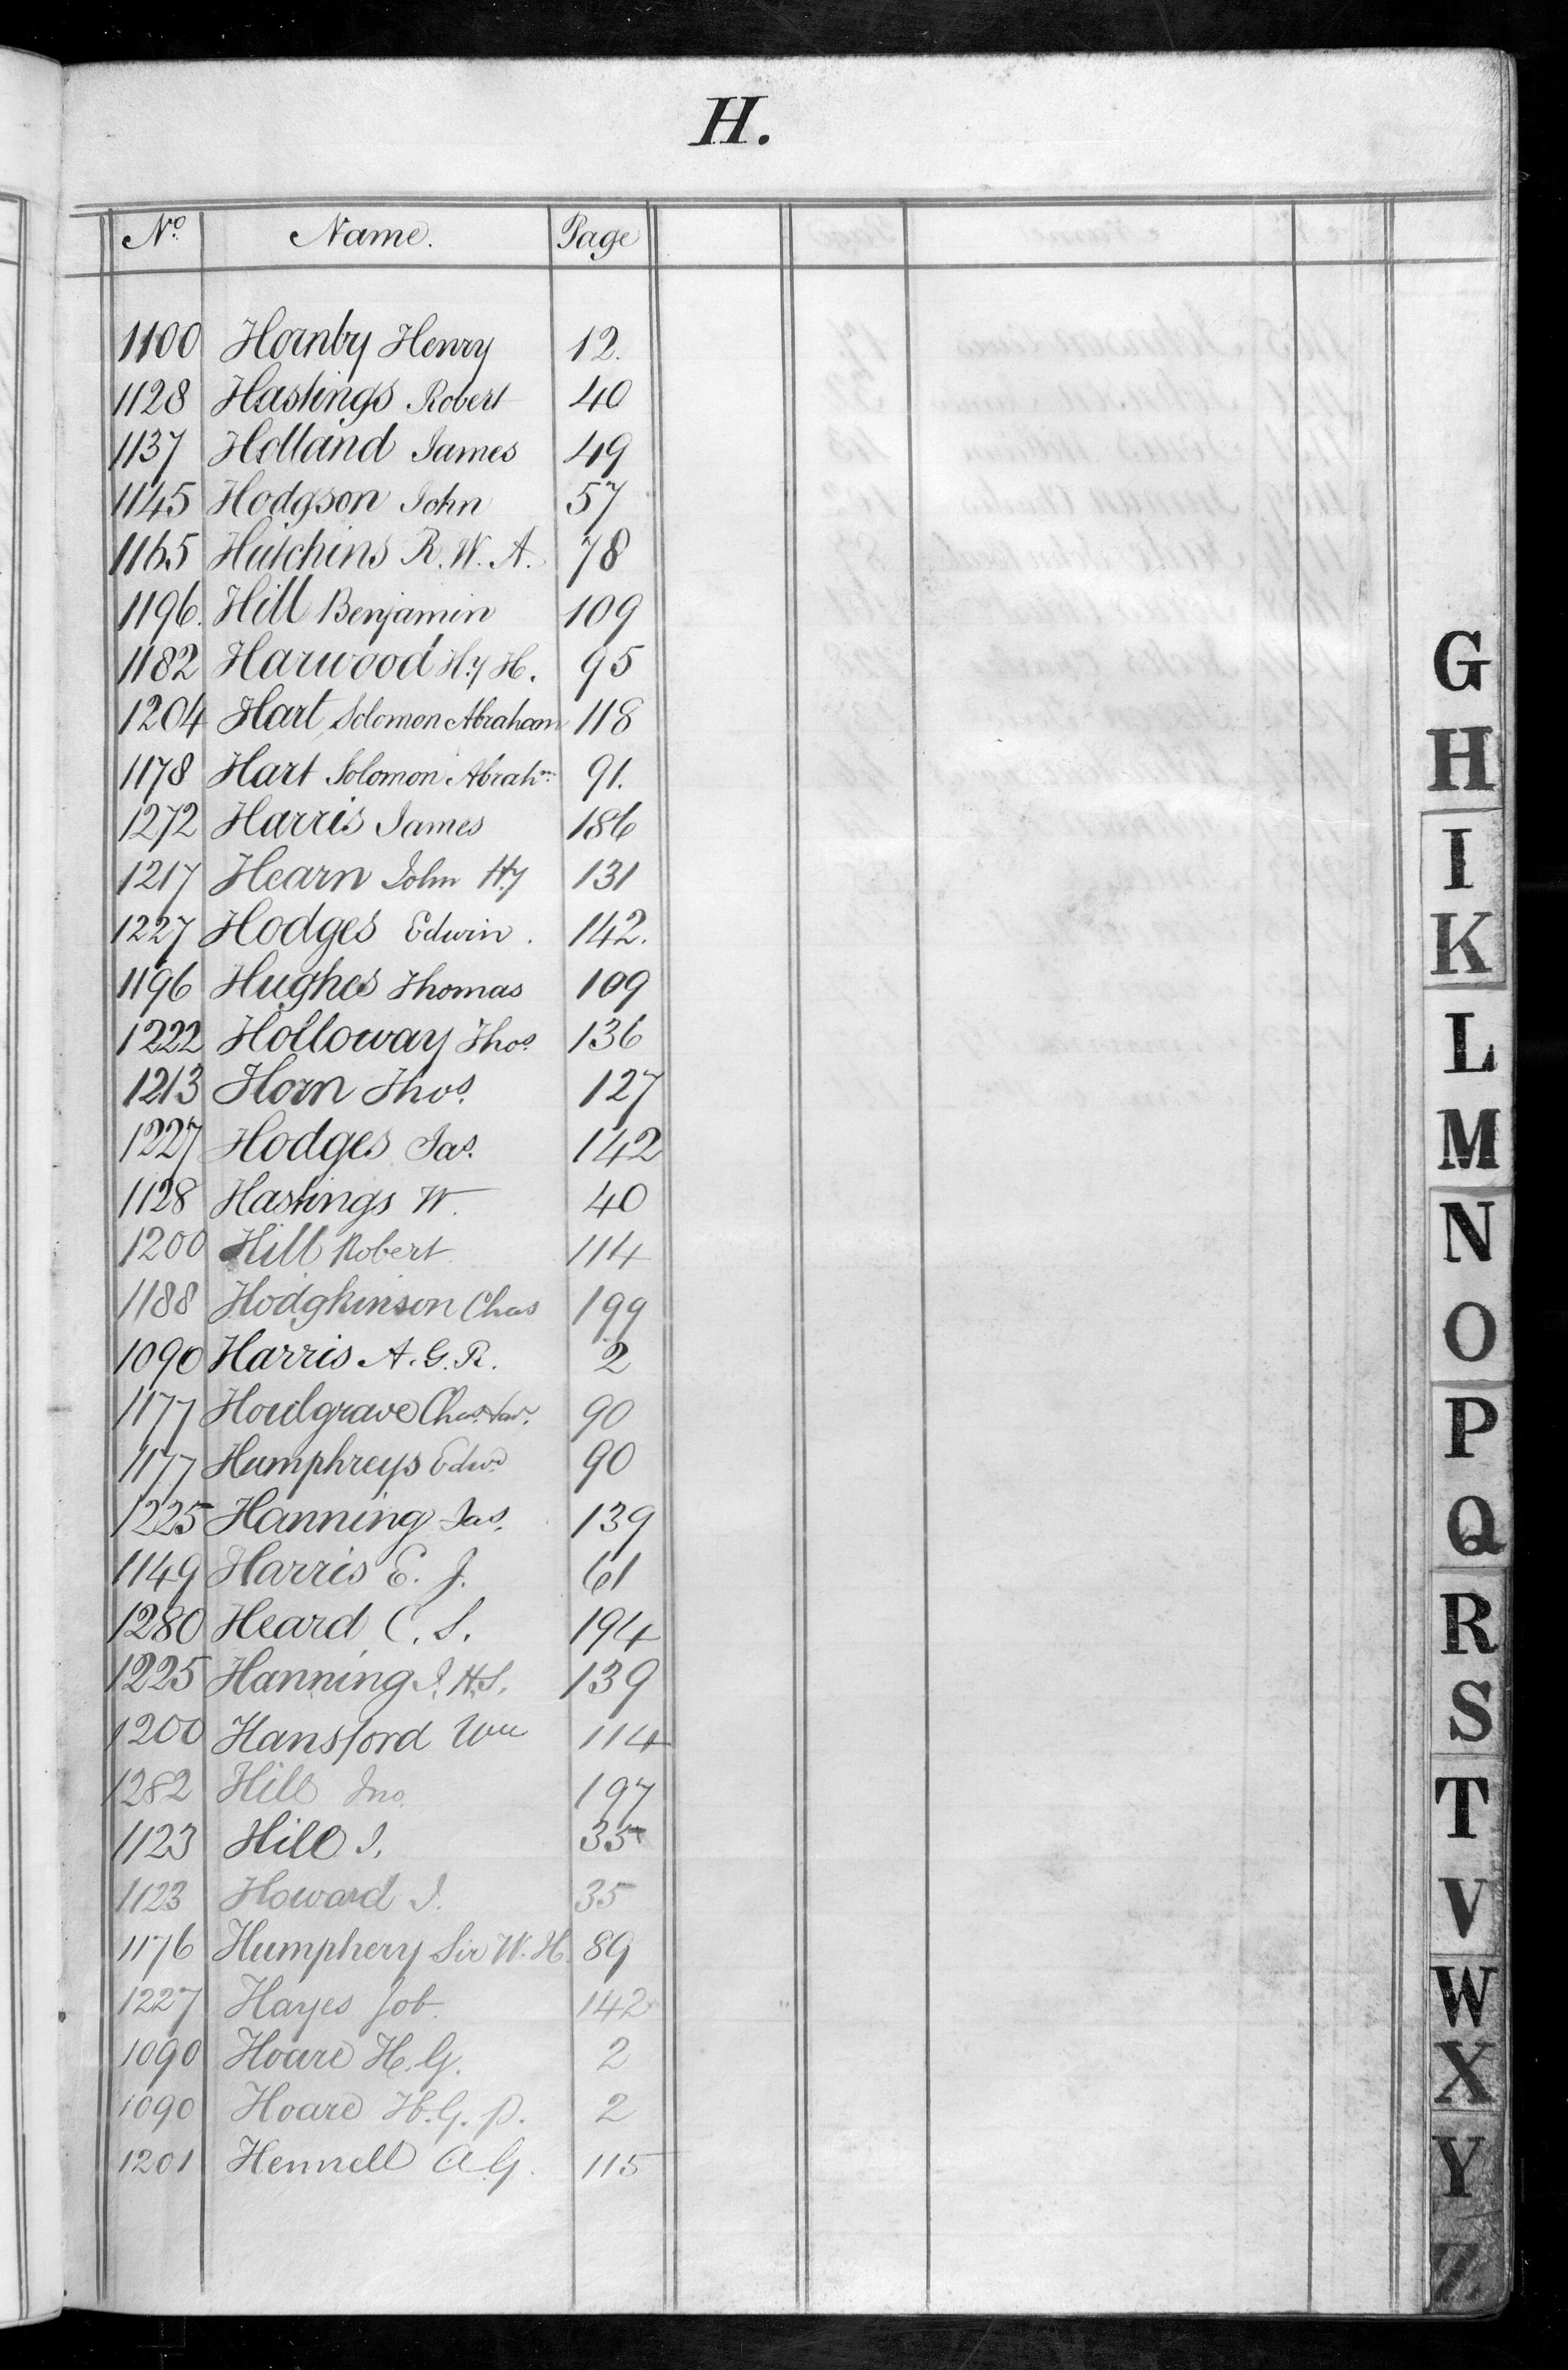 H.
No. Name. Page
1100 Hornby Henry 12.
1128 Hastings Robert 40
1137 Holland James 49
1145 Hodgson John 57
1165 Hutchins R. W. A. 78
1196. Hill Benjamin 109
1182 Harwood Hy H. 95
1204 Hart Solomon Abraham 118
1178 Hart Solomon Abrahm 91.
1272 Harris James 186
1217 Hearn John Hy 131
1227 Hodges Edwin . 142.
1196 Hughes Thomas 109
1222 Holloway Thos. 136
1213 Horn Thos. 127
1227 Hodges Jas. 142
1128 Hastings W. 40
1200 Hill Robert 114
1188 Hodgkinson Chas 199
1090 Harris A. G. R. 2
1177 Houlgrave Chas. Jas. 90
1177 Humphreys Edwd 90
1225 Hanning Jas. 139
1149 Harris E. J. 61
1280 Heard C. S. 194
1225 Hanning J. H. S. 139
1200 Hansford Wm 114
1282 Hill Jno. 197
1123 Hill J. 35
1123 Howard J. 35
1176 Humphery Sir W. H. 89
1227 Hayes Job. 142
1090 Hoare H. G. 2
1090 Hoare H. G. P. 2
1201 Hennell A G. 115
G
H
I
K
L
M
N
O
P
Q
R
S
T
V
W
X
Y
Z